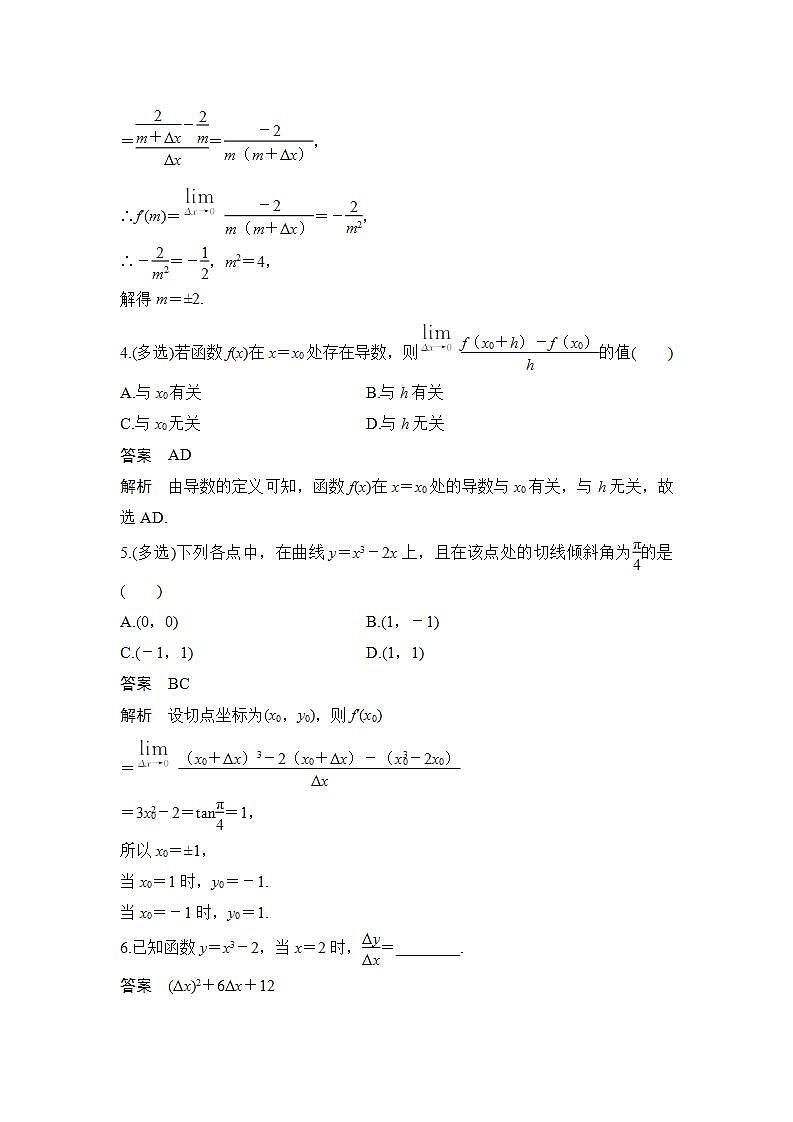 =(2/(m+Δx)-2/m)/Δx=-2/(m（m+Δx）),
∴f′(m)=lim(Δx→0) -2/(m（m+Δx）)=-2/m²,
∴-2/m²=-1/2，m²=4，
解得 m=±2.
4.(多选)若函数 f(x)在 x=x₀ 处存在导数，则lim(Δx→0) (f（x₀+h）-f（x₀）)/h 的值(　　)
A.与 x₀有关　　B.与 h 有关
C.与 x₀无关　　D.与 h 无关
答案　AD
解析　由导数的定义可知，函数 f(x)在 x=x₀ 处的导数与 x₀ 有关，与 h 无关，故
选 AD.
5.(多选)下列各点中，在曲线 y=x³-2x 上，且在该点处的切线倾斜角为π/4的是
(　　)
A.(0，0)　　B.(1，-1)
C.(-1，1)　　D.(1，1)
答案　BC
解析　设切点坐标为(x₀，y₀)，则 f′(x₀)
=lim(Δx→0) (（x₀+Δx）³-2（x₀+Δx）-（x₀³-2x₀）)/Δx
=3x₀²-2=tanπ/4=1，
所以 x₀=±1，
当 x₀=1 时，y₀=-1.
当 x₀=-1 时，y₀=1.
6.已知函数 y=x³-2，当 x=2 时，Δy/Δx=________.
答案　(Δx)²+6Δx+12